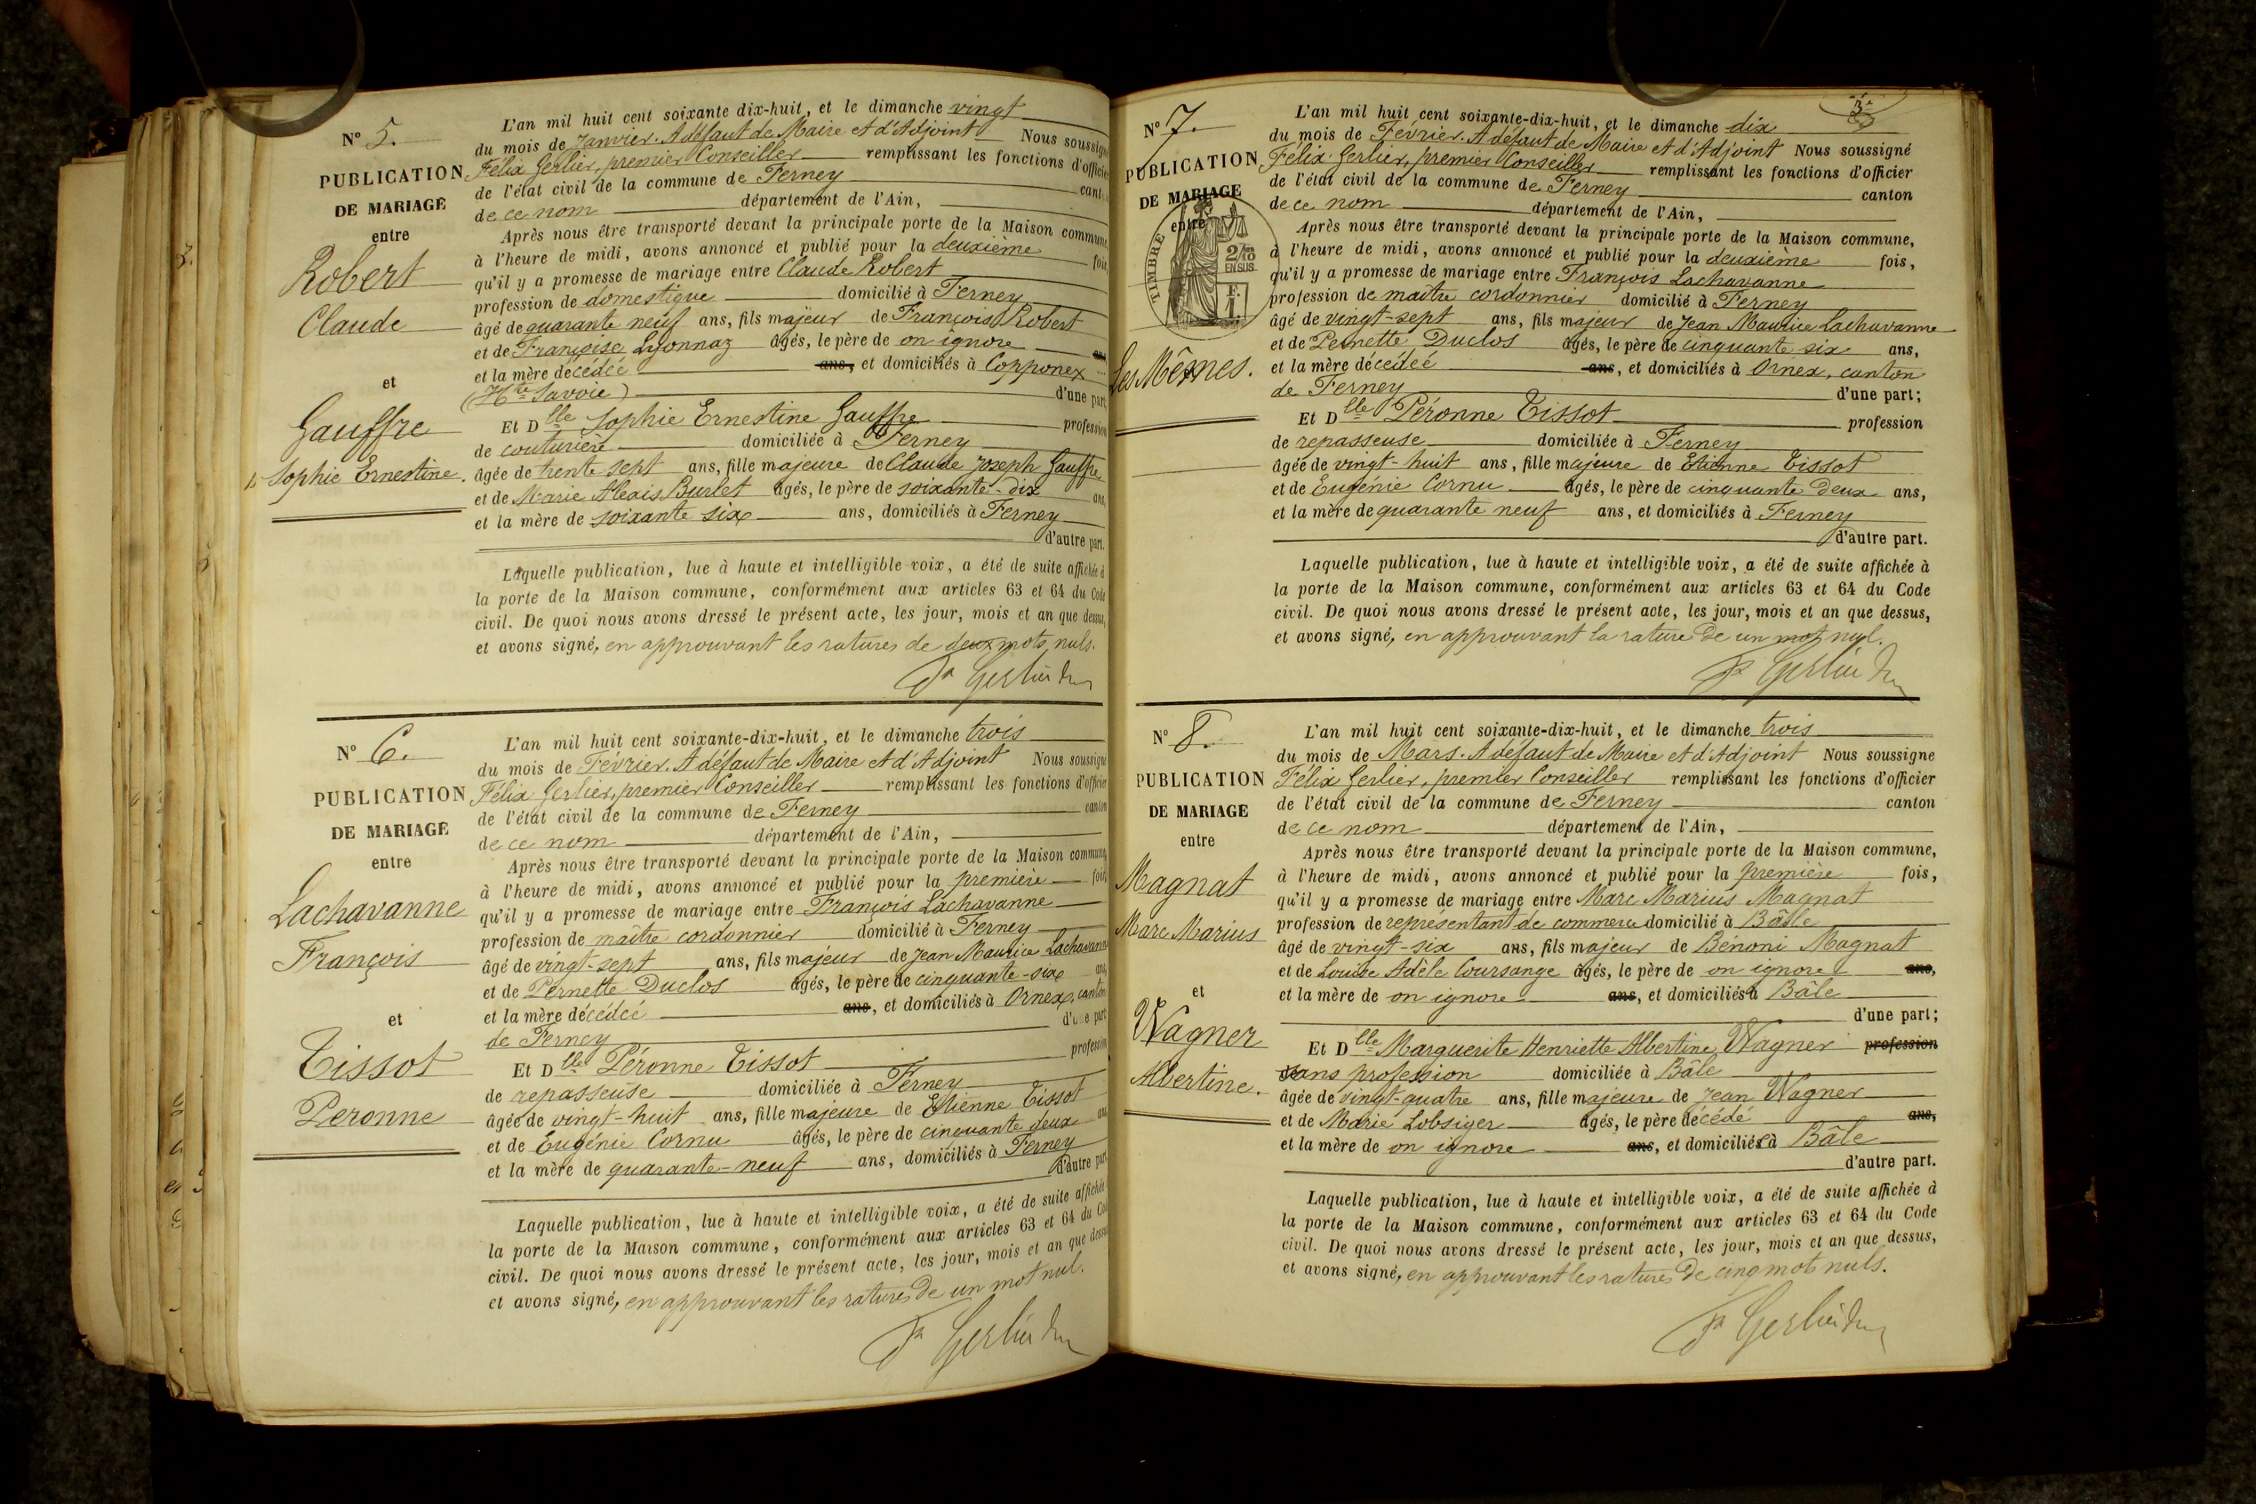 N° 5.
PUBLICATION
DE MARIAGE
entre
Robert
Claude
et
Gauffre
Sophie Ernestine.
L'an mil huit cent soixante dix-huit, et le dimanche vingt
du mois de Janvier. A défaut de Maire et d'Adjoint Nous soussigné
Félix Gerlier, premier Conseiller remplissant les fonctions d'officier
de l'état civil de la commune de Ferney canton
de ce nom département de l'Ain,
Après nous être transporté devant la principale porte de la Maison commune,
à l'heure de midi, avons annoncé et publié pour la deuxième fois,
qu'il y a promesse de mariage entre Claude Robert
profession de domestique domicilié à Ferney
âgé de quarante neuf ans, fils majeur de François Robert
et de Françoise Lyonnaz âgés, le père de on ignore ans,
et la mère décédée ans, et domiciliés à Copponex
(Hte Savoie) d'une part,
Et Dlle Sophie Ernestine Gauffre profession
de couturière domiciliée à Ferney
âgée de trente sept ans, fille majeure de Claude Joseph Gauffre
et de Marie Alexis Burlet âgés, le père de soixante-dix ans,
et la mère de soixante six ans, domiciliés à Ferney
d'autre part.
Laquelle publication, lue à haute et intelligible voix, a été de suite affichée à
la porte de la Maison commune, conformément aux articles 63 et 64 du Code
civil. De quoi nous avons dressé le présent acte, les jour, mois et an que dessus,
et avons signé, en approuvant les ratures de deux mots nuls.
N° 6.
PUBLICATION
DE MARIAGE
entre
Lachavanne
François
et
Tissot
Peronne
L'an mil huit cent soixante-dix-huit, et le dimanche trois
du mois de Février. A défaut de Maire et d'Adjoint Nous soussigné
Félix Gerlier, premier Conseiller remplissant les fonctions d'officier
de l'état civil de la commune de Ferney canton
de ce nom département de l'Ain,
Après nous être transporté devant la principale porte de la Maison commune,
à l'heure de midi, avons annoncé et publié pour la première fois,
qu'il y a promesse de mariage entre François Lachavanne
profession de maître cordonnier domicilié à Ferney
âgé de vingt-sept ans, fils majeur de Jean Maurice Lachavanne
et de Pernette Duclos âgés, le père de cinquante-six ans,
et la mère décédée ans, et domiciliés à Ornex, canton
de Ferney d'une part
Et Dlle Péronne Tissot profession
de repasseuse domiciliée à Ferney
âgée de vingt-huit ans, fille majeure de Etienne Tissot
et de Eugénie Cornu âgés, le père de cinquante deux ans
et la mère de quarante-neuf ans, domiciliés à Ferney
d'autre part
Laquelle publication, lue à haute et intelligible voix, a été de suite affichée
la porte de la Maison commune, conformément aux articles 63 et 64 du Code
civil. De quoi nous avons dressé le présent acte, les jour, mois et an que dessus
et avons signé, en approuvant les ratures de un mot nul.
N° 7.
PUBLICATION
DE MARIAGE
entre
TIMBRE
2/10
EN SUS
F.
1.
Les Mêmes.
L'an mil huit cent soixante-dix-huit, et le dimanche dix
du mois de Février. A défaut de Maire et d'Adjoint Nous soussigné
Félix Gerlier, premier Conseiller remplissant les fonctions d'officier
de l'état civil de la commune de Ferney canton
de ce nom département de l'Ain,
Après nous être transporté devant la principale porte de la Maison commune,
à l'heure de midi, avons annoncé et publié pour la deuxième fois,
qu'il y a promesse de mariage entre François Lachavanne
profession de maître cordonnier domicilié à Ferney
âgé de vingt-sept ans, fils majeur de Jean Maurice Lachavanne
et de Pernette Duclos âgés, le père de cinquante six ans,
et la mère décédée ans, et domiciliés à Ornex, canton
de Ferney d'une part;
Et Dlle Péronne Tissot profession
de repasseuse domiciliée à Ferney
âgée de vingt-huit ans, fille majeure de Etienne Tissot
et de Eugénie Cornu âgés, le père de cinquante deux ans,
et la mère de quarante neuf ans, et domiciliés à Ferney
d'autre part.
Laquelle publication, lue à haute et intelligible voix, a été de suite affichée à
la porte de la Maison commune, conformément aux articles 63 et 64 du Code
civil. De quoi nous avons dressé le présent acte, les jour, mois et an que dessus,
et avons signé, en approuvant la rature de un mot nul.
N° 8.
PUBLICATION
DE MARIAGE
entre
Magnat
Marc Marius
et
Wagner
Albertine.
L'an mil huit cent soixante-dix-huit, et le dimanche trois
du mois de Mars. A défaut de Maire et d'Adjoint Nous soussigné
Félix Gerlier, premier Conseiller remplissant les fonctions d'officier
de l'état civil de la commune de Ferney canton
de ce nom département de l'Ain,
Après nous être transporté devant la principale porte de la Maison commune,
à l'heure de midi, avons annoncé et publié pour la première fois,
qu'il y a promesse de mariage entre Marc Marius Magnat
profession de représentant de commerce domicilié à Bâle
âgé de vingt-six ans, fils majeur de Bénoni Magnat
et de Louise Adèle Coursange âgés, le père de on ignore ans,
et la mère de on ignore ans, et domiciliés à Bâle
d'une part;
Et Dlle Marguerite Henriette Albertine Wagner profession
sans profession domiciliée à Bâle
âgée de vingt-quatre ans, fille majeure de Jean Wagner
et de Marie Lobsiger âgés, le père décédé ans,
et la mère de on ignore ans, et domiciliés à Bâle
d'autre part.
Laquelle publication, lue à haute et intelligible voix, a été de suite affichée à
la porte de la Maison commune, conformément aux articles 63 et 64 du Code
civil. De quoi nous avons dressé le présent acte, les jour, mois et an que dessus,
et avons signé, en approuvant les ratures de cinq mots nuls.